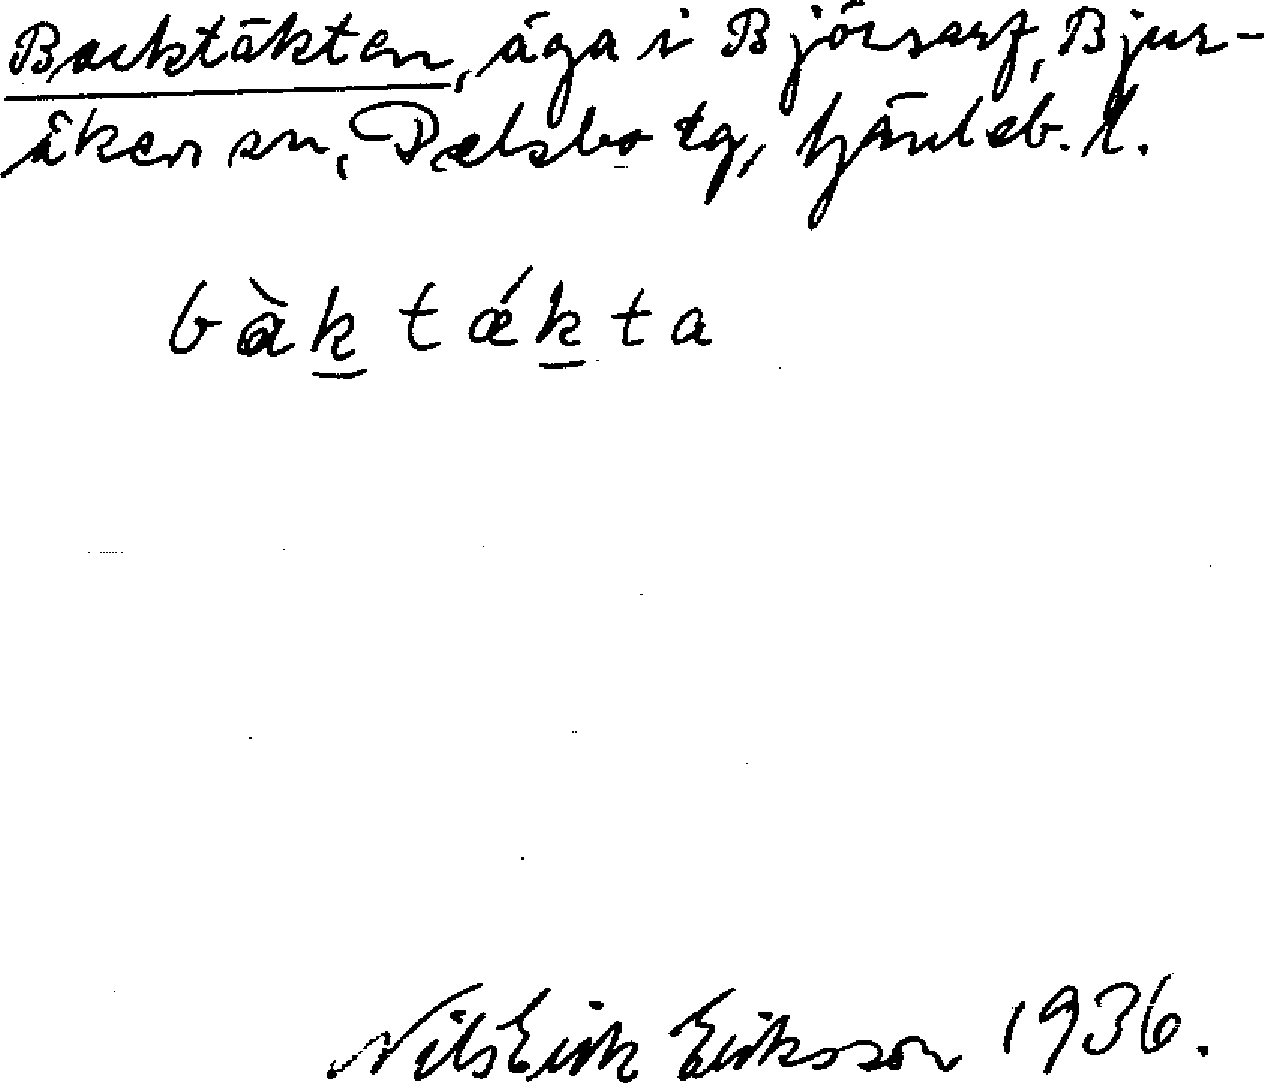 Backtäkten, äga i Björsarf, Bjur-
åkers sn, Delsbo tg, Gävleb. l.
bàk tǽkta
Nils Erik Eriksson 1936.